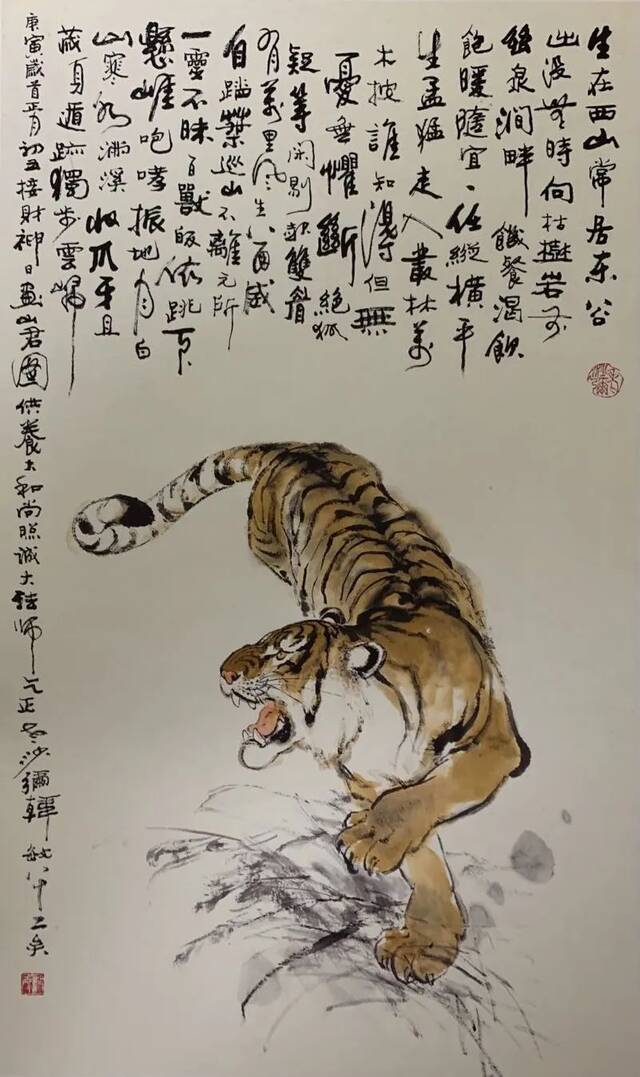 生在西山常居东公
出没無時向枯樹岩前
強泉澗畔　饑餐渴飲
飽暖隨宜、任縱橫平
生孟猛走入叢林萬
木披誰知得但無
憂無懼斷絕狐
疑等閑剔起雙眉
有萬里風生八面威
自踏葉巡山不離元所
一靈不昧百獸皈依跳下
懸崖咆哮振地月白
山寒水滿溪收爪牙且
藏身遁跡獨步雲歸
庚寅歲首正月初五接財神日畫山君圖供養大和尚照誠大法師乞正老沙彌韓敏八十二矣